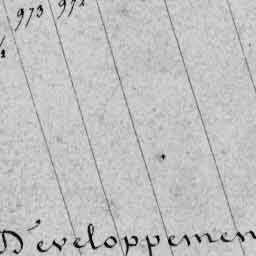 973
Développemen